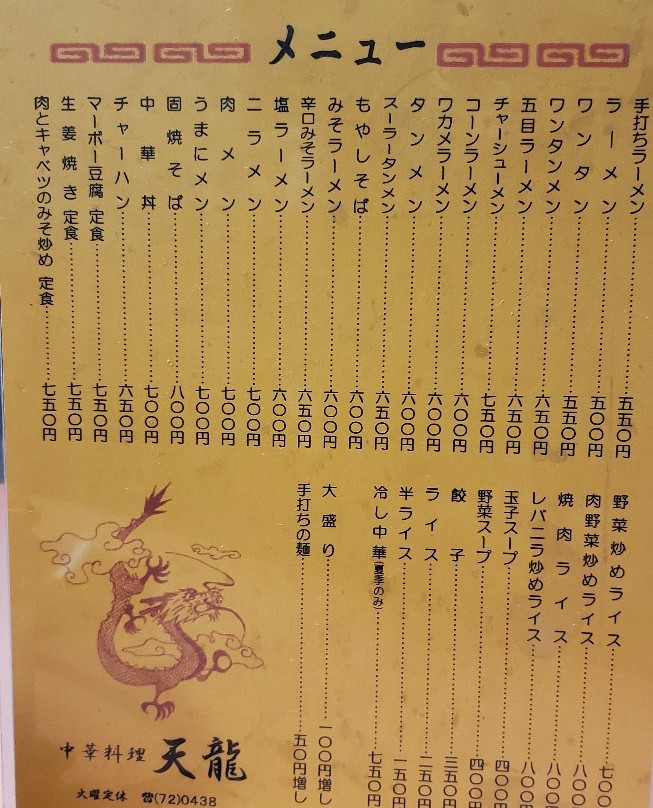 メニュー
手打ちラーメン……五五〇円
ラーメン……五〇〇円
ワンタン……五五〇円
ワンタンメン……六五〇円
五目ラーメン……六五〇円
チャーシューメン……七五〇円
コーンラーメン……六〇〇円
ワカメラーメン……六〇〇円
タンメン……六〇〇円
スーラータンメン……六五〇円
もやしそば……六〇〇円
みそラーメン……六〇〇円
辛口みそラーメン……六五〇円
塩ラーメン……六〇〇円
ニラメン……七〇〇円
肉メン……七〇〇円
うまにメン……七〇〇円
固焼そば……八〇〇円
中華丼……七〇〇円
チャーハン……六五〇円
マーボー豆腐定食……七五〇円
生姜焼き定食……七五〇円
肉とキャベツのみそ炒め 定食……七五〇円
野菜炒めライス……七〇〇
肉野菜炒めライス……八〇〇
焼肉ライス……八〇〇
レバニラ炒めライス……八〇〇
玉子スープ……四〇〇
野菜スープ……四〇〇
餃子……三五〇円
ライス……二五〇円
半ライス……一五〇円
冷し中華(夏季のみ)……七五〇円
大盛り……一〇〇円増し
手打ちの麺……五〇円増し
中華料理 天龍
火曜定休 ☎(72)0438